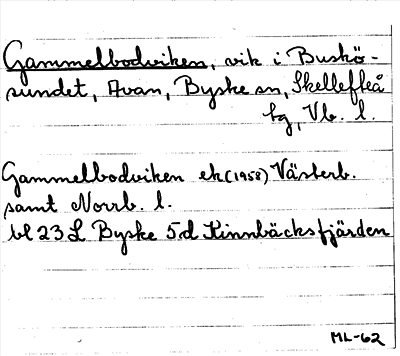 Gammelbodviken, vik i Buskö-
sundet, Avan, Byske sn, Skellefteå
tg, Vb. l.
Gammelbodviken ek (1958) Västerb.
samt Norrb. l.
bl 23 L Byske 5d Kinnbäcksfjärden
ML-62